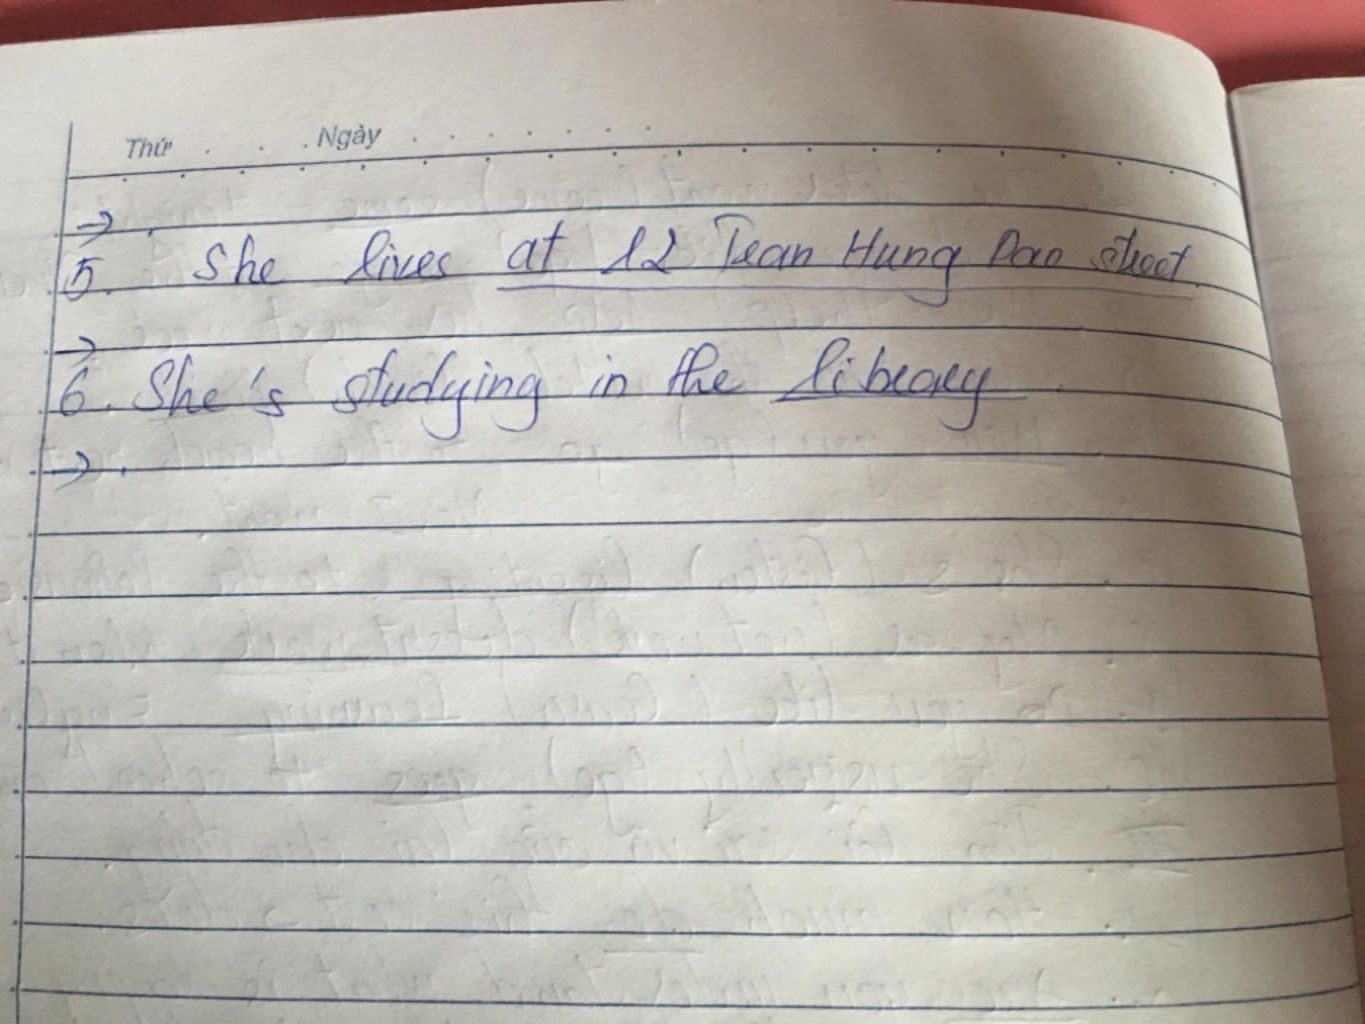 Thứ . . . Ngày . . . . . . . .
→ .
5. She lives at 12 Tran Hung Dao street
→
6. She's studying in the library
→ .